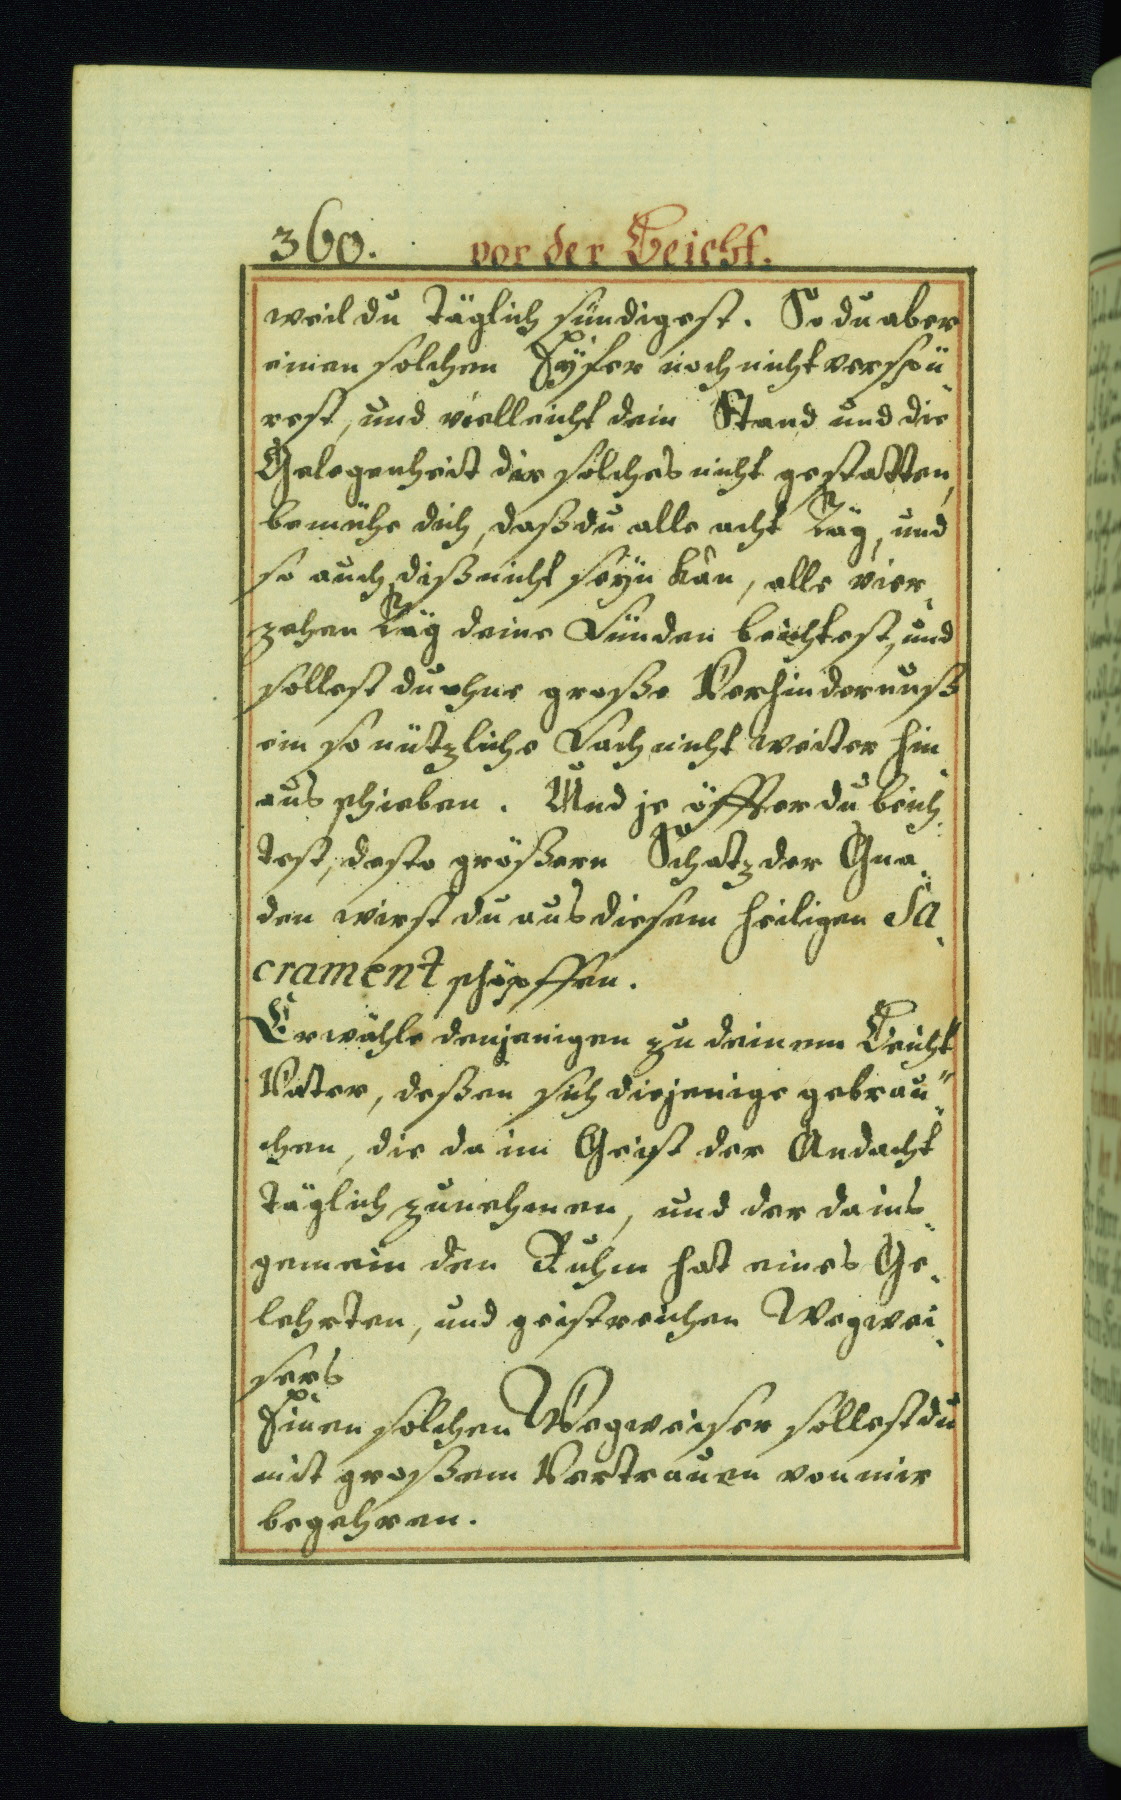 360. vor der Beicht.
weil du täglich sündigest. So du aber
einen solchen Eyfer noch nicht verspü„
rest, und vielleicht dein Stand und die
Gelegenheit dir solches nicht gestatten,
bemühe dich, daß du alle acht Täg, und
so auch diß nicht seyn kan, alle vier„
zehen Täg deine Sünden beichtest, und
sollest du ohne große Verhindernuß
ein so nützliche Sach nicht weiter hin„
aus schieben. Und je öffter du beich„
test, desto größern Schatz der Gna„
den wirst du aus diesem heiligen Sa„
crament schöpffen.
Erwähle denjenigen zu deinem Beicht„
Vater, deßen sich diejenige gebrau„
chen, die da im Geist der Andacht
täglich zunehmen, und der da ins„
gemein den Ruhm hat eines Ge„
lehrten, und geistreichen Wegwei„
sers
Einen solchen Wegweiser sollest du
mit großem Vertrauen von mir
begehren.